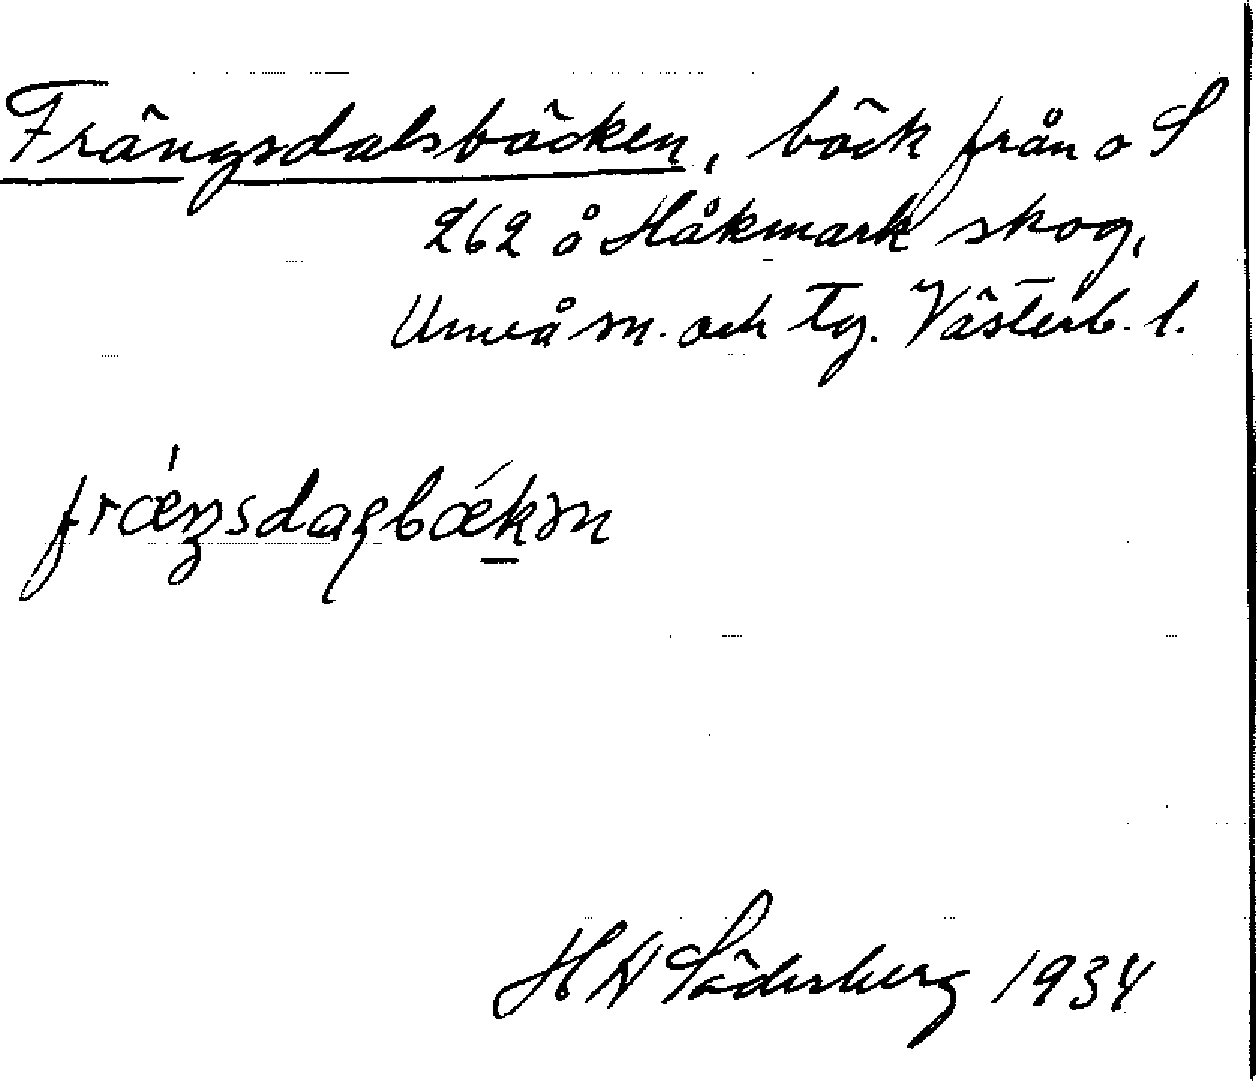 Frängsdalsbäcken, bäck från o S
262 å Håkmark skog,
Umeå sn. och tg. Västerb. l.
frǽŋsdaʂbǽkən
H W Söderberg 1934